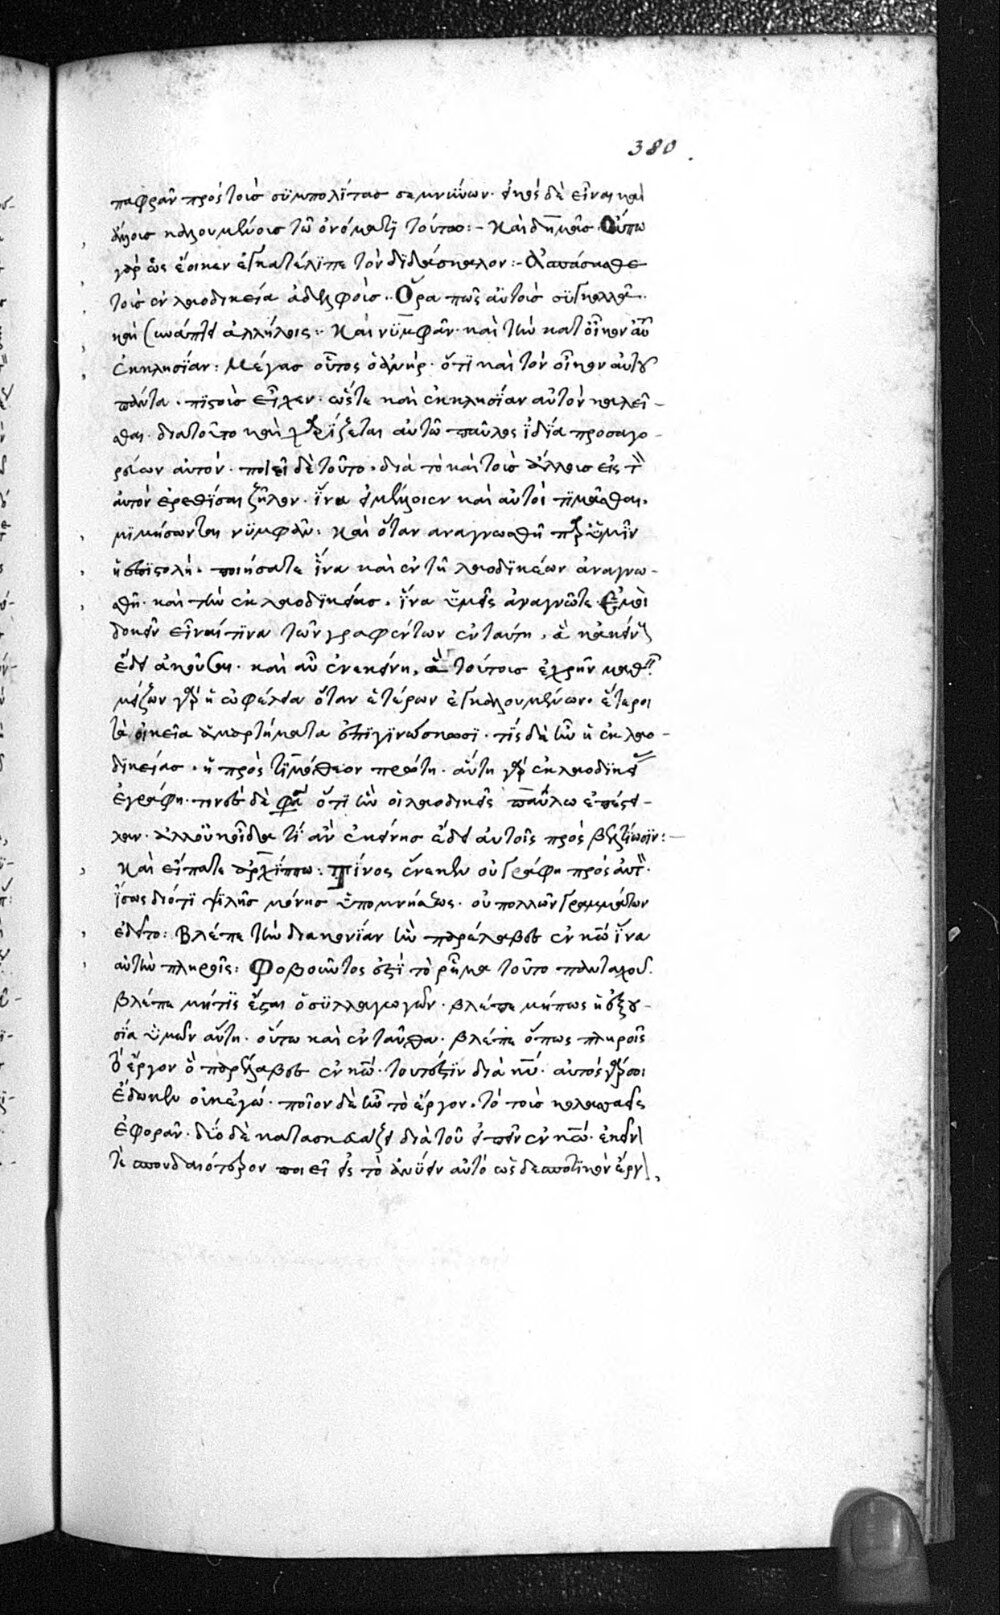 380
παφρᾶν πρὸς τοὺς συμπολίτας σεμνύνων· εἰκὸς δὲ εἶναι καὶ
ἄλλους καλουμένους τῶ ὀνόματϊ τούτω:– Καὶ δημᾶς· Οὔπω
γὰρ ὡς ἔοικεν ἐγκατέλϊπε τὸν διδάσκαλον:– Ἀσπάσασθε
τοὺς ἐν λαοδικεία ἀδελφούς·· Ὅρα πῶς αὐτοὺς συγκολλᾶ··
καὶ συνάπτει ἀλλήλοις:· Καὶ νυμφᾶν· καὶ τὴν κατ οἶκον αὐτοῦ
ἐκκλησίαν: Μέγας οὗτος ὁ ἀνήρ· ὅτι καὶ τὸν οἶκον αὐτοῦ
πάντα· πιστοὺς εἶχεν· ὥστε καὶ ἐκκλησίαν αὐτὸν καλεῖ–
σθαι· διατοῦτο καὶ χαρίζεται αὐτῶ παῦλος ἰδία προσαγο–
ρεύων αὐτόν· ποιεῖ δὲ τοῦτο· διὰ τὸ καὶ τοὺς ἄλλους εἰς τὸν
αὐτὸν ἐρεθίσαι ζῆλον· ἵνα ἐμέλλοιεν καὶ αὐτοὶ τϊμᾶσθαι·
μϊμήσωνται νυμφᾶν: Καὶ ὅταν αναγνωσθῆ παρ ὑμῖν
ἡ ἐπϊστολή· ποιήσατε ἵνα καὶ ἐν τῆ λαοδϊκέων ἀναγνω–
σθῆ· καὶ τὴν ἐκ λαοδϊκείας· ἵνα ὑμεῖς ἀναγνῶτε· Ἐμοὶ
δοκεῖν εἶναί τϊνα τῶν γραφέντων ἐν ταύτη, ἃ κἀκείν
ἔδει ἀκοῦσαι· καὶ αὖ ἐν ἐκείνη, ἃ τούτοις ἐχρῆν μαθεῖν
μείζων γὰρ ἡ ὠφέλεια ὅταν ἑτέρων ἐγκαλουμένων· ἕτεροι
τὰ οἰκεῖα ἁμαρτήματα ἐπιγινώσκωσϊ· τίς δὲ ἦν ἡ ἐκ λαο–
δϊκείας· ἡ πρὸς τϊμόθεον πρώτη· αὕτη γὰρ ἐκ λαοδϊκείας
ἐγράφη· τινὲς δὲ φασὶ ὅτι ἣν οἱ λαοδικεῖς παύλω ἐπέστει–
λαν· ἀλλ οὐκ οἶδα τί ἂν ἐκείνης ἔδει αὐτοῖς πρὸς βελτίωσϊν:–
Καὶ εἴπατε ἀρχίππω: Τίνος ἕνεκεν οὐ γράφη πρὸς αὐτόν·
ἴσως διότϊ ψιλῆς μόνης ὑπομνήσεως· οὐ πολλῶν γραμμάτων
ἐδεῖτο: Βλέπε τὴν διακονίαν ἣν παρέλαβες ἐν κω ἵνα
αὐτὴν πληροῖς: Φοβοῦντος ἐστὶ τὸ ῥῆμα τοῦτο πανταχοῦ·
βλέπε μήτϊς ἔσται ὁ συλλαγωγῶν· βλέπε μήπως ἡ ἐξου–
σία ὑμῶν αὕτη· οὕτω καὶ ἐνταῦθα· βλέπε ὅπως πληροῖς
τὸ ἔργον ὃ παρέλαβες ἐν κω· τουτέστϊν διὰ κυ· αὐτὸς γάρ σοι
ἔδωκεν οὐκ ἐγώ· ποῖον δὲ ἦν τὸ ἔργον· τὸ τοὺς κολασσαεῖς
ἐφορᾶν· διὸ δὲ κατασκευάζει διὰ τοῦ εἰπεῖν ἐν κω· ἐκεῖν
τε σπουδαιότερον ποιεῖ εἰς τὸ ἀνύειν αὐτὸ ὡς δεσποτϊκὸν ἔργ